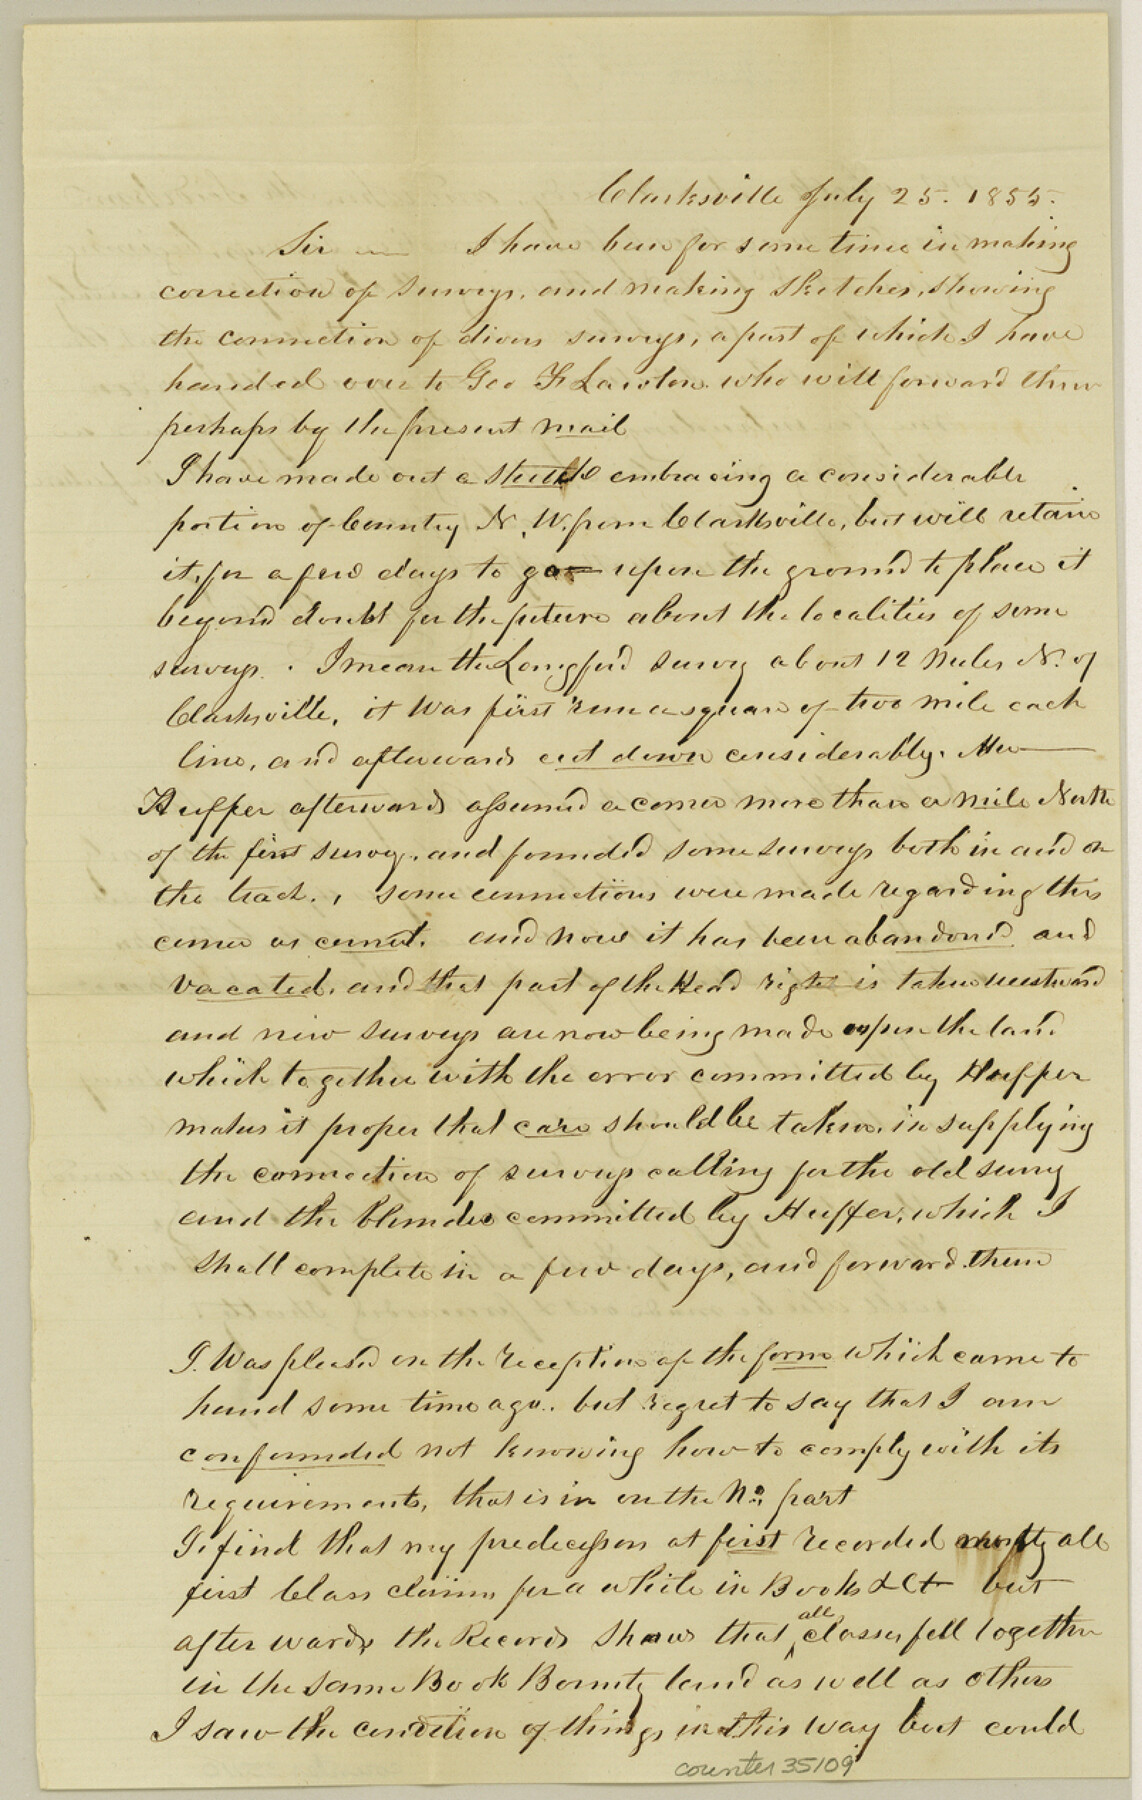 Clarksville July 25. 1855.
Sir — I have been for some time in making
correction of surveys, and making sketches, showing
the connection of divers surveys, a part of which I have
handed over to Geo F Lawton who will forward them
perhaps by the present mail
I have made out a sketch embracing a considerable
portion of Country N. W. from Clarksville, but will retain
it, for a few days to go upon the ground to place it
beyond doubt for the future about the localities of some
surveys. I mean the Longford survey about 12 Miles N. of
Clarksville, it was first run a square of two mile each
line, and afterwards cut down considerably. Mr
Huffer afterwards assumed a corner more than a mile North
of the first survey, and founded some surveys both in and on
the tract., some connections were made regarding this
corner as correct. and now it has been abandond and
vacated, and that part of the Head right is taken westward
and new surveys are now being made upon the land
which together with the error committed by Huffer
makes it proper that care should be taken in supplying
the connection of surveys calling for the old survy
and the blunder committed by Huffer, which I
shall complete in a few days, and forward them
I was pleased on the reception of the form which came to
hand some time ago. but regret to say that I am
confounded not knowing how to comply with its
requirements, that is in on the No. part
I find that my predecessors at first recorded mostly all
first Class claims for a while in Book but
afterwards the Records shows that all classes fell together
in the same Book Bounty land as well as others
I saw the condition of things in this way but could
counter 35109